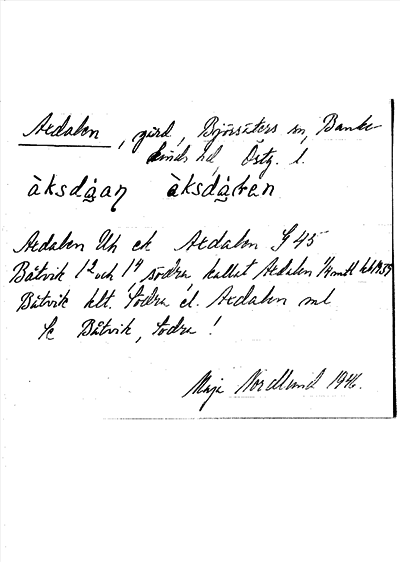 Axdalen, gård, Björsäters sn, Banke-
kinds hd, Östg. l.
àksdå̀aŋ àksdå̀ɫen
Axdalen Uh ek Axdalen G 45
Båtvik 1 2 och 1 4 södra kallat Axdalen 1/4 mtl
Båtvik klt. Södra el. Axdalen ml
Se Båtvik, Södra!
Maja Nordlund 1946.